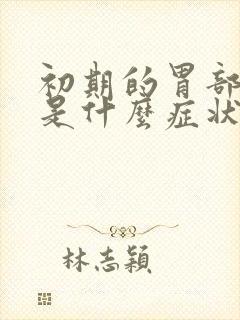 初期的胃部
是什麼症狀
林志穎